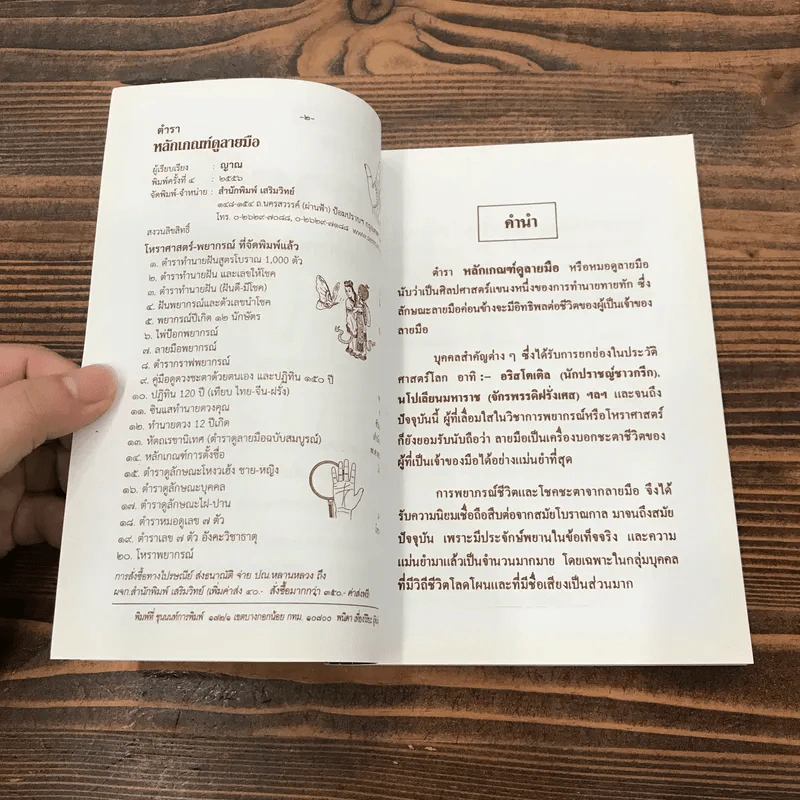 -๒-
ตำรา
หลักเกณฑ์ดูลายมือ
ผู้เรียบเรียง : ญาณ
พิมพ์ครั้งที่ ๔ : ๒๕๕๖
จัดพิมพ์-จำหน่าย : สำนักพิมพ์ เสริมวิทย์
๑๔๘-๑๕๔ ถ.นครสวรรค์ (ผ่านฟ้า) ป้อมปราบฯ
โทร. ๐-๒๖๒๙-๗๐๘๘, ๐-๒๖๒๙-๗๑๘๘
สงวนลิขสิทธิ์
โหราศาสตร์-พยากรณ์ ที่จัดพิมพ์แล้ว
๑. ตำราทำนายฝันสูตรโบราณ 1,000 ตัว
๒. ตำราทำนายฝัน และเลขให้โชค
๓. ตำราทำนายฝัน (ฝันดี-มีโชค)
๔. ฝันพยากรณ์และตัวเลขนำโชค
๕. พยากรณ์ปีเกิด ๑๒ นักษัตร
๖. ไพ่ป๊อกพยากรณ์
๗. ลายมือพยากรณ์
๘. ตำรากราฟพยากรณ์
๙. คู่มือดูดวงชะตาด้วยตนเอง และปฏิทิน ๑๕๐ ปี
๑๐. ปฏิทิน 120 ปี (เทียบ ไทย-จีน-ฝรั่ง)
๑๑. ซินแสทำนายดวงคุณ
๑๒. ทำนายดวง 12 ปีเกิด
๑๓. หัตถเรขานิเทศ (ตำราดูลายมือฉบับสมบูรณ์)
๑๔. หลักเกณฑ์การตั้งชื่อ
๑๕. ตำราดูลักษณะโหงวเฮ้ง ชาย-หญิง
๑๖. ตำราดูลักษณะบุคคล
๑๗. ตำราดูลักษณะไฝ-ปาน
๑๘. ตำราหมอดูเลข ๗ ตัว
๑๙. ตำราเลข ๗ ตัว อังคะวิชาธาตุ
๒๐. โหราพยากรณ์
การสั่งซื้อทางไปรษณีย์ ส่งธนาณัติ จ่าย ปณ.หลานหลวง ถึง
ผจก.สำนักพิมพ์ เสริมวิทย์ (เพิ่มค่าส่ง ๔๐.- สั่งซื้อมากกว่า ๓๕๐.- ค่าส่งฟรี)
พิมพ์ที่ ขุนนนท์การพิมพ์ ๑๗๒/๑ เขตบางกอกน้อย กทม. ๑๐๗๐๐ พนิดา
คำนำ
ตำรา หลักเกณฑ์ดูลายมือ หรือหมอดูลายมือ
นับว่าเป็นศิลปศาสตร์แขนงหนึ่งของการทำนายทายทัก ซึ่ง
ลักษณะลายมือค่อนข้างจะมีอิทธิพลต่อชีวิตของผู้เป็นเจ้าของ
ลายมือ
บุคคลสำคัญต่าง ๆ ซึ่งได้รับการยกย่องในประวัติ
ศาสตร์โลก อาทิ :– อริสโตเติล (นักปราชญ์ชาวกรีก),
นโปเลียนมหาราช (จักรพรรดิฝรั่งเศส) ฯลฯ และจนถึง
ปัจจุบันนี้ ผู้ที่เลื่อมใสในวิชาการพยากรณ์หรือโหราศาสตร์
ก็ยังยอมรับนับถือว่า ลายมือเป็นเครื่องบอกชะตาชีวิตของ
ผู้ที่เป็นเจ้าของมือได้อย่างแม่นยำที่สุด
การพยากรณ์ชีวิตและโชคชะตาจากลายมือ จึงได้
รับความนิยมเชื่อถือสืบต่อจากสมัยโบราณกาล มาจนถึงสมัย
ปัจจุบัน เพราะมีประจักษ์พยานในข้อเท็จจริง และความ
แม่นยำมาแล้วเป็นจำนวนมากมาย โดยเฉพาะในกลุ่มบุคคล
ที่มีวิถีชีวิตโลดโผนและที่มีชื่อเสียงเป็นส่วนมาก